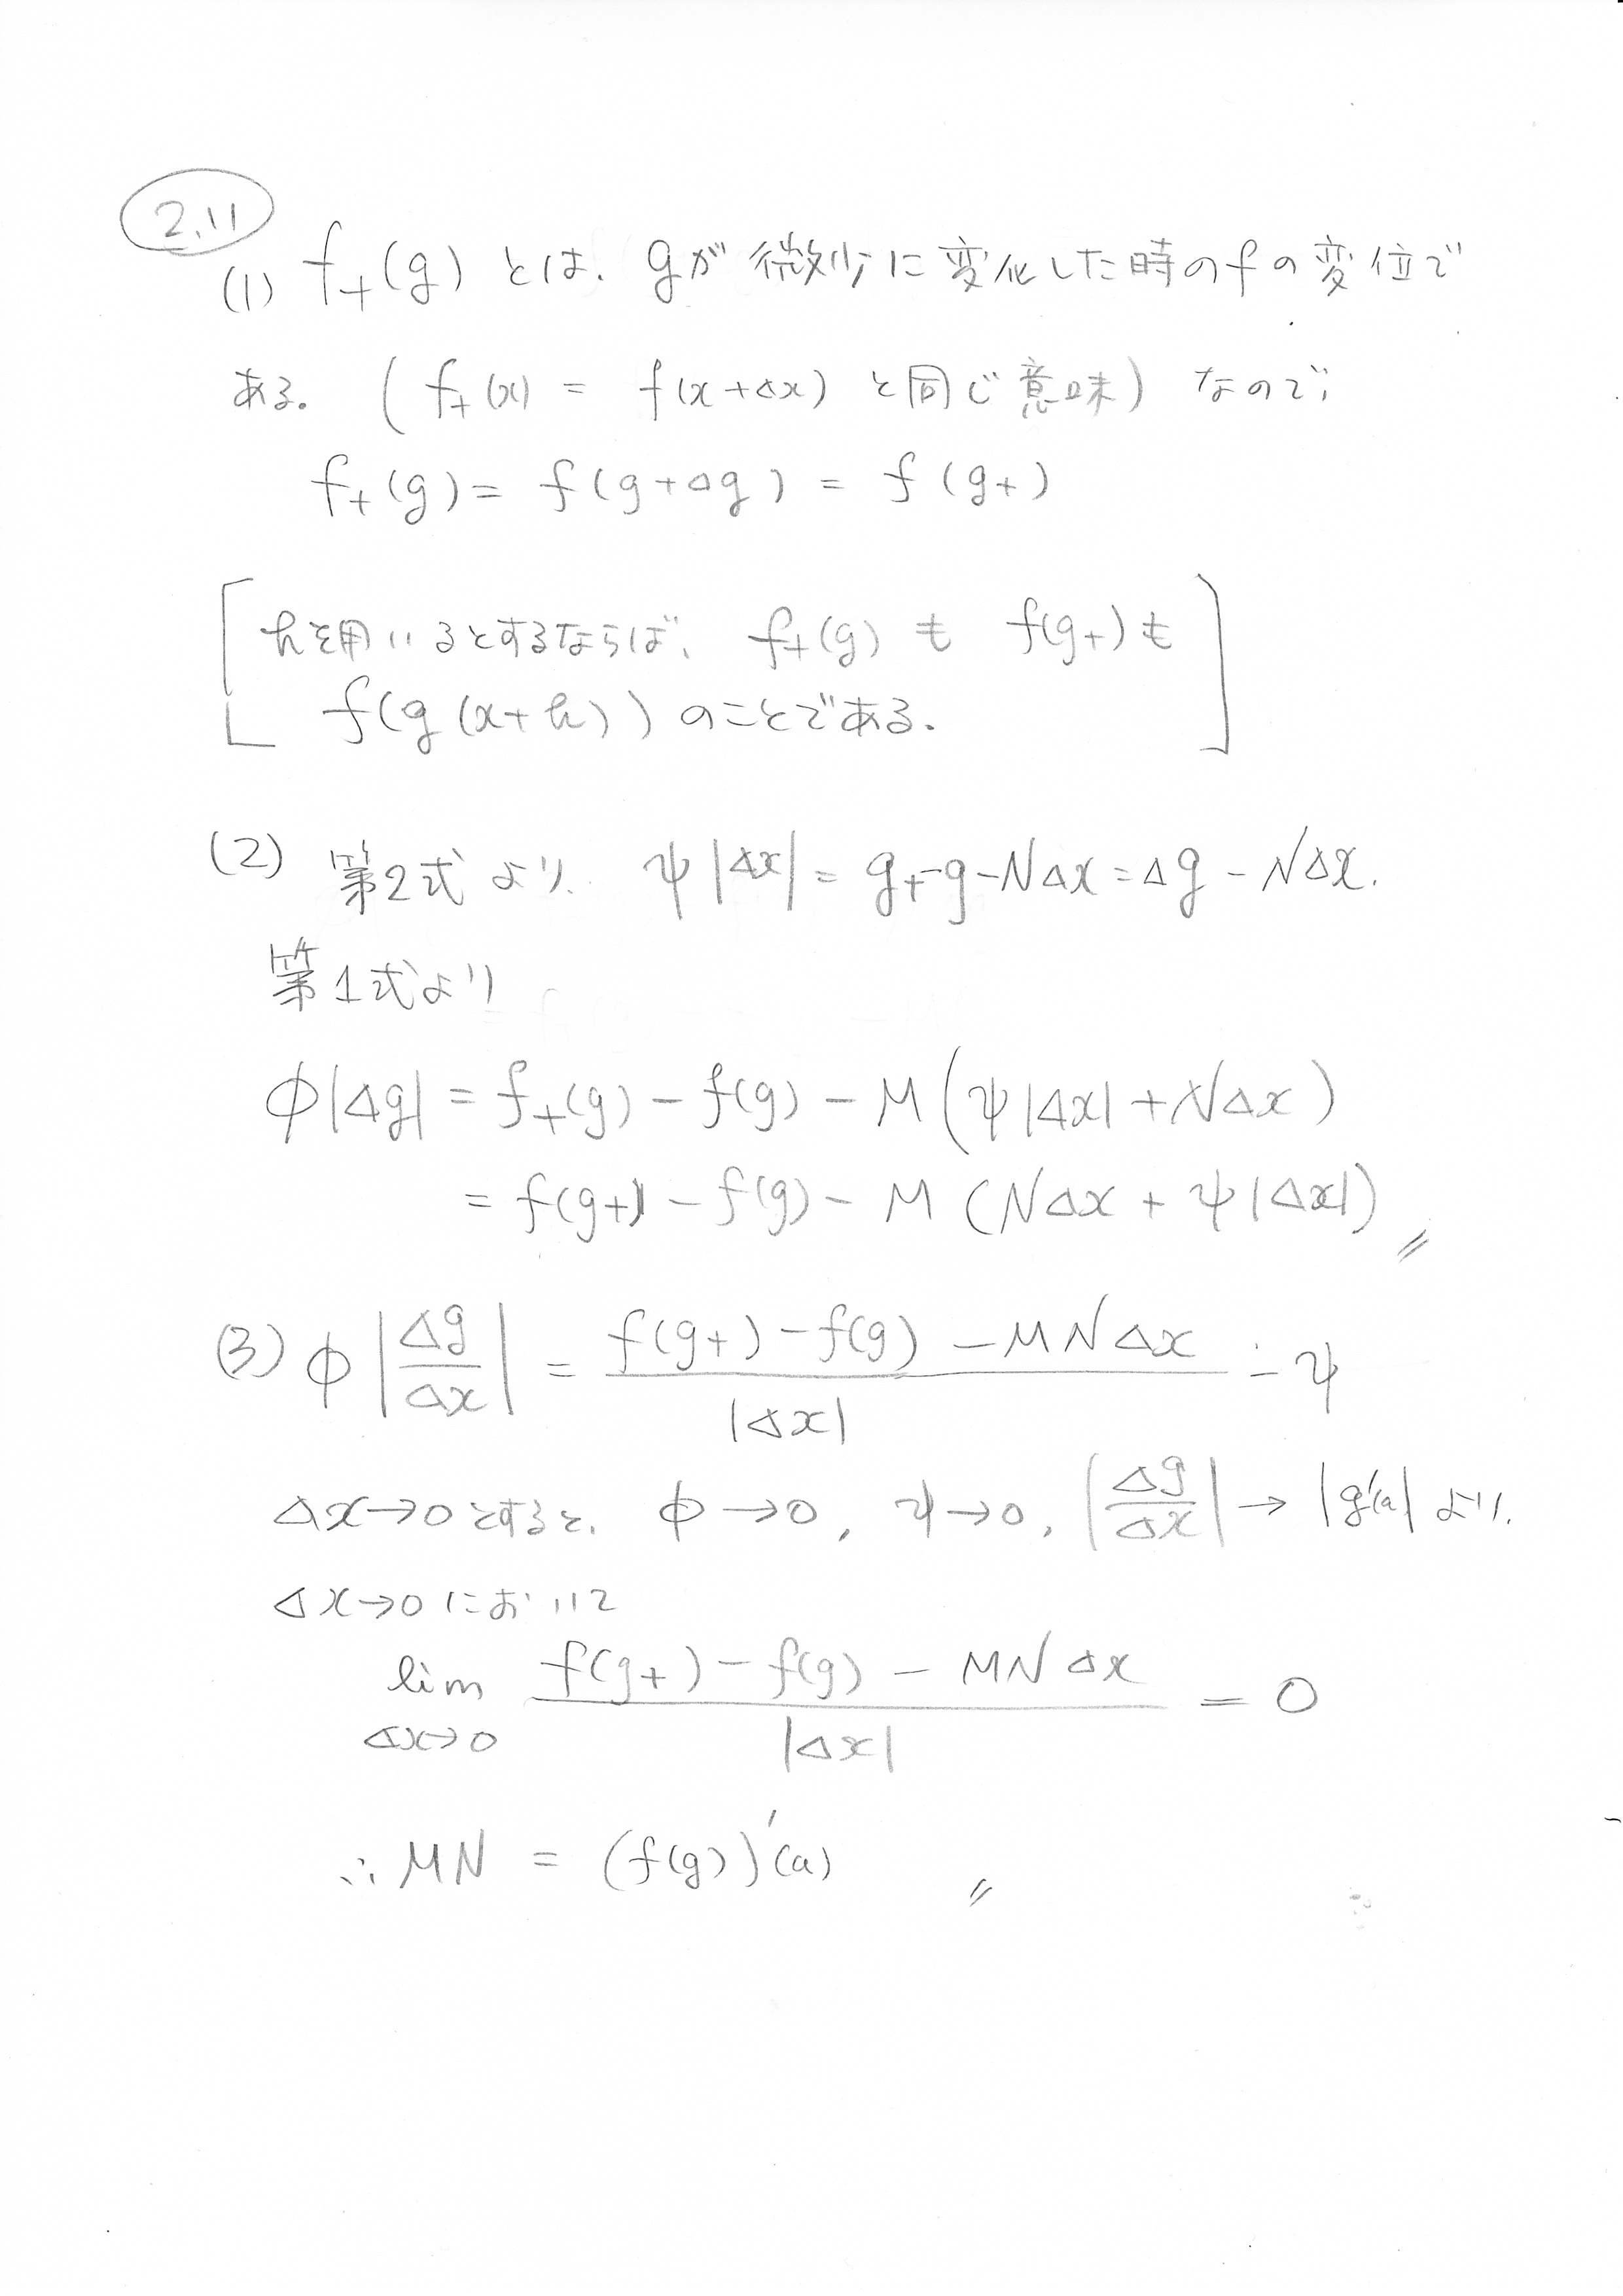 2.11
(1) f₊(g) とは、gが 微少に変化した時のfの変位で
ある。 (f₊(x) = f(x+Δx) と同じ意味) なので、
f₊(g) = f(g+Δg) = f(g₊)
[hを用いるとするならば、 f₊(g) も f(g₊) も
f(g(x+h)) のことである。]
(2) 第2式より、 ψ|Δx| = g₊-g-NΔx = Δg - NΔx.
第1式より
φ|Δg| = f₊(g) - f(g) - M(ψ|Δx| + NΔx)
= f(g₊) - f(g) - M(NΔx + ψ|Δx|) 〃
(3) φ|Δg/Δx| = (f(g₊) - f(g) - MNΔx)/|Δx| - ψ
Δx→0とすると、 φ→0, ψ→0, |Δg/Δx| → |g'(a)| より、
Δx→0において
lim Δx→0 (f(g₊) - f(g) - MNΔx)/|Δx| = 0
∴ MN = (f(g))'(a) 〃